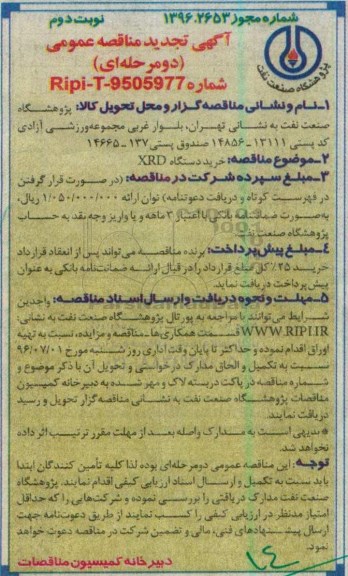 شماره مجوز ۱۳۹۶.۲۶۵۳
نوبت دوم
آگهی تجدید مناقصه عمومی
(دومرحله‌ای)
شماره Ripi-T-9505977
پژوهشگاه صنعت نفت
۱ـ نام و نشانی مناقصه‌گزار و محل تحویل کالا: پژوهشگاه
صنعت نفت به نشانی تهران، بلوار غربی مجموعه‌ورزشی آزادی
کد پستی ۱۳۱۱۱ـ۱۴۸۵۶ صندوق پستی ۱۳۷ـ۱۴۶۶۵
۲ـ موضوع مناقصه: خرید دستگاه XRD
۳ـ مبلغ سپرده شرکت در مناقصه: (در صورت قرار گرفتن
در فهرست کوتاه و دریافت دعوتنامه) توان ارائه ۱/۰۵۰/۰۰۰/۰۰۰ ریال،
به‌صورت ضمانتنامه بانکی با اعتبار ۳ ماهه و یا واریز وجه نقد به حساب
پژوهشگاه صنعت نفت
۴ـ مبلغ پیش‌پرداخت: برنده مناقصه می‌تواند پس از انعقاد قرارداد
خرید ۲۵٪ کل مبلغ قرارداد را در قبال ارائه ضمانت‌نامه بانکی به عنوان
پیش‌پرداخت دریافت نماید.
۵ـ مهلت و نحوه دریافت و ارسال اسناد مناقصه: واجدین
شرایط می‌توانند با مراجعه به پورتال پژوهشگاه صنعت نفت به نشانی:
WWW.RIPI.IR قسمت همکاری‌ها ـ مناقصه و مزایده، نسبت به تهیه
اوراق اقدام نموده و حداکثر تا پایان وقت اداری روز شنبه مورخ ۹۶/۰۷/۰۱
نسبت به تکمیل و الحاق مدارک درخواستی و تحویل آن با ذکر موضوع و
شماره مناقصه در پاکت دربسته لاک و مهر شده به دبیرخانه کمیسیون
مناقصات پژوهشگاه صنعت نفت به نشانی مناقصه‌گزار تحویل و رسید
دریافت نمایند.
* بدیهی است به مدارک واصله بعد از مهلت مقرر ترتیب اثر داده
نخواهد شد.
توجه: این مناقصه عمومی دومرحله‌ای بوده لذا کلیه تأمین کنندگان ابتدا
باید نسبت به تکمیل و ارسال اسناد ارزیابی کیفی اقدام نمایند. پژوهشگاه
صنعت نفت مدارک دریافتی را بررسی نموده و شرکت‌هایی را که حداقل
امتیاز مدنظر در ارزیابی کیفی را کسب نمایند از طریق دعوت‌نامه جهت
ارسال پیشنهادهای فنی، مالی و تضمین شرکت در مناقصه دعوت خواهد
نمود.
دبیرخانه کمیسیون مناقصات